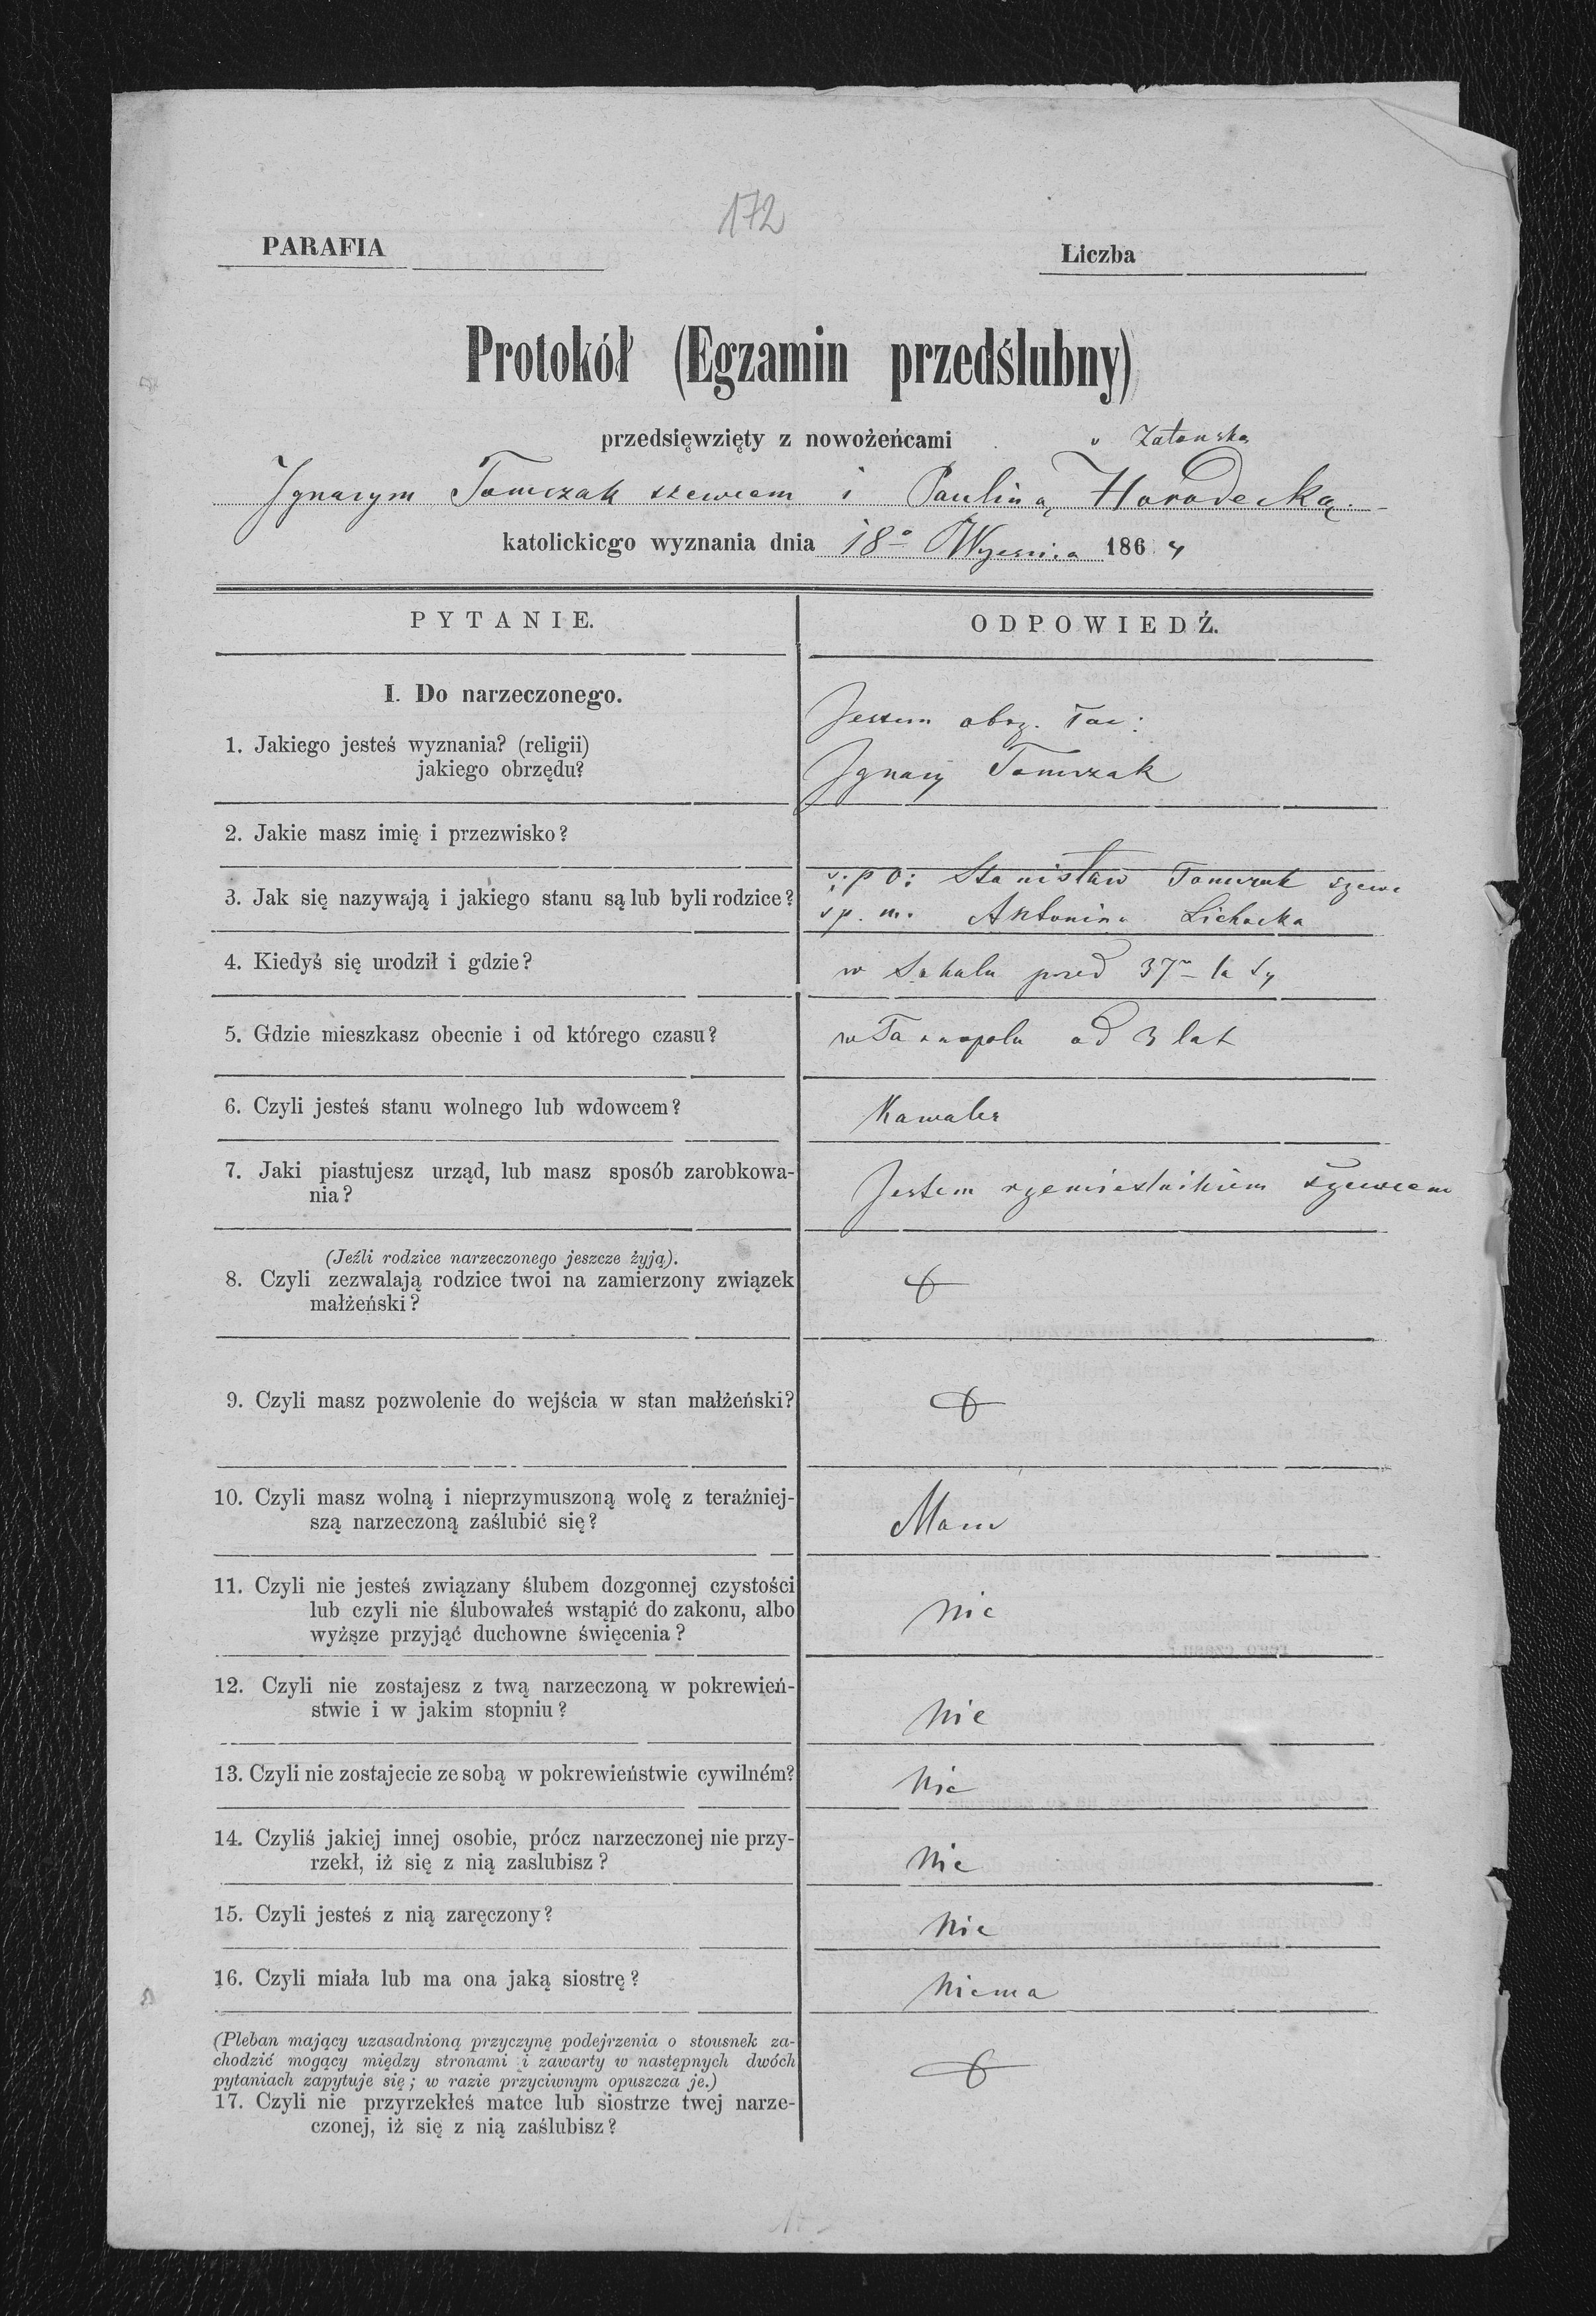 172
PARAFIA
Liczba
Protokół (Egzamin przedślubny)
przedsięwzięty z nowożeńcami
Ignacym Tomczak szewcem i Pauliną Horodecką
katolickiego wyznania dnia 18o Wrzesnia 1864
PYTANIE.
ODPOWIEDŹ.
I. Do narzeczonego.
1. Jakiego jesteś wyznania? (religii)
jakiego obrzędu?
Jestem obrz. łac:
Ignacy Tomczak
2. Jakie masz imię i przezwisko?
3. Jak się nazywają i jakiego stanu są lub byli rodzice?
ś: p o: Stanisław Tomczak szewc
śp. m. Antonina Lichacka
4. Kiedyś się urodził i gdzie?
w przed 37 laty
5. Gdzie mieszkasz obecnie i od którego czasu?
w Tarnopolu od 3 lat
6. Czyli jesteś stanu wolnego lub wdowcem?
Kawaler
7. Jaki piastujesz urząd, lub masz sposób zarobkowa-
nia?
Jestem rzemieslnikiem szewcem
(Jeźli rodzice narzeczonego jeszcze żyją).
8. Czyli zezwalają rodzice twoi na zamierzony związek
małżeński?
9. Czyli masz pozwolenie do wejścia w stan małżeński?
10. Czyli masz wolną i nieprzymuszoną wolę z teraźniej-
szą narzeczoną zaślubić się?
Mam
11. Czyli nie jesteś związany ślubem dozgonnej czystości
lub czyli nie ślubowałeś wstąpić do zakonu, albo
wyższe przyjąć duchowne święcenia?
nie
12. Czyli nie zostajesz z twą narzeczoną w pokrewień-
stwie i w jakim stopniu?
Nie
13. Czyli nie zostajecie ze sobą w pokrewieństwie cywilném?
Nie
14. Czyliś jakiej innej osobie, prócz narzeczonej nie przy-
rzekł, iż się z nią zaslubisz?
Nie
15. Czyli jesteś z nią zaręczony?
Nie
16. Czyli miała lub ma ona jaką siostrę?
Niema
(Pleban mający uzasadnioną przyczynę podejrzenia o stousnek za-
chodzić mogący między stronami i zawarty w następnych dwóch
pytaniach zapytuje się; w razie przyciwnym opuszcza je.)
17. Czyli nie przyrzekłeś matce lub siostrze twej narze-
czonej, iż się z nią zaślubisz?